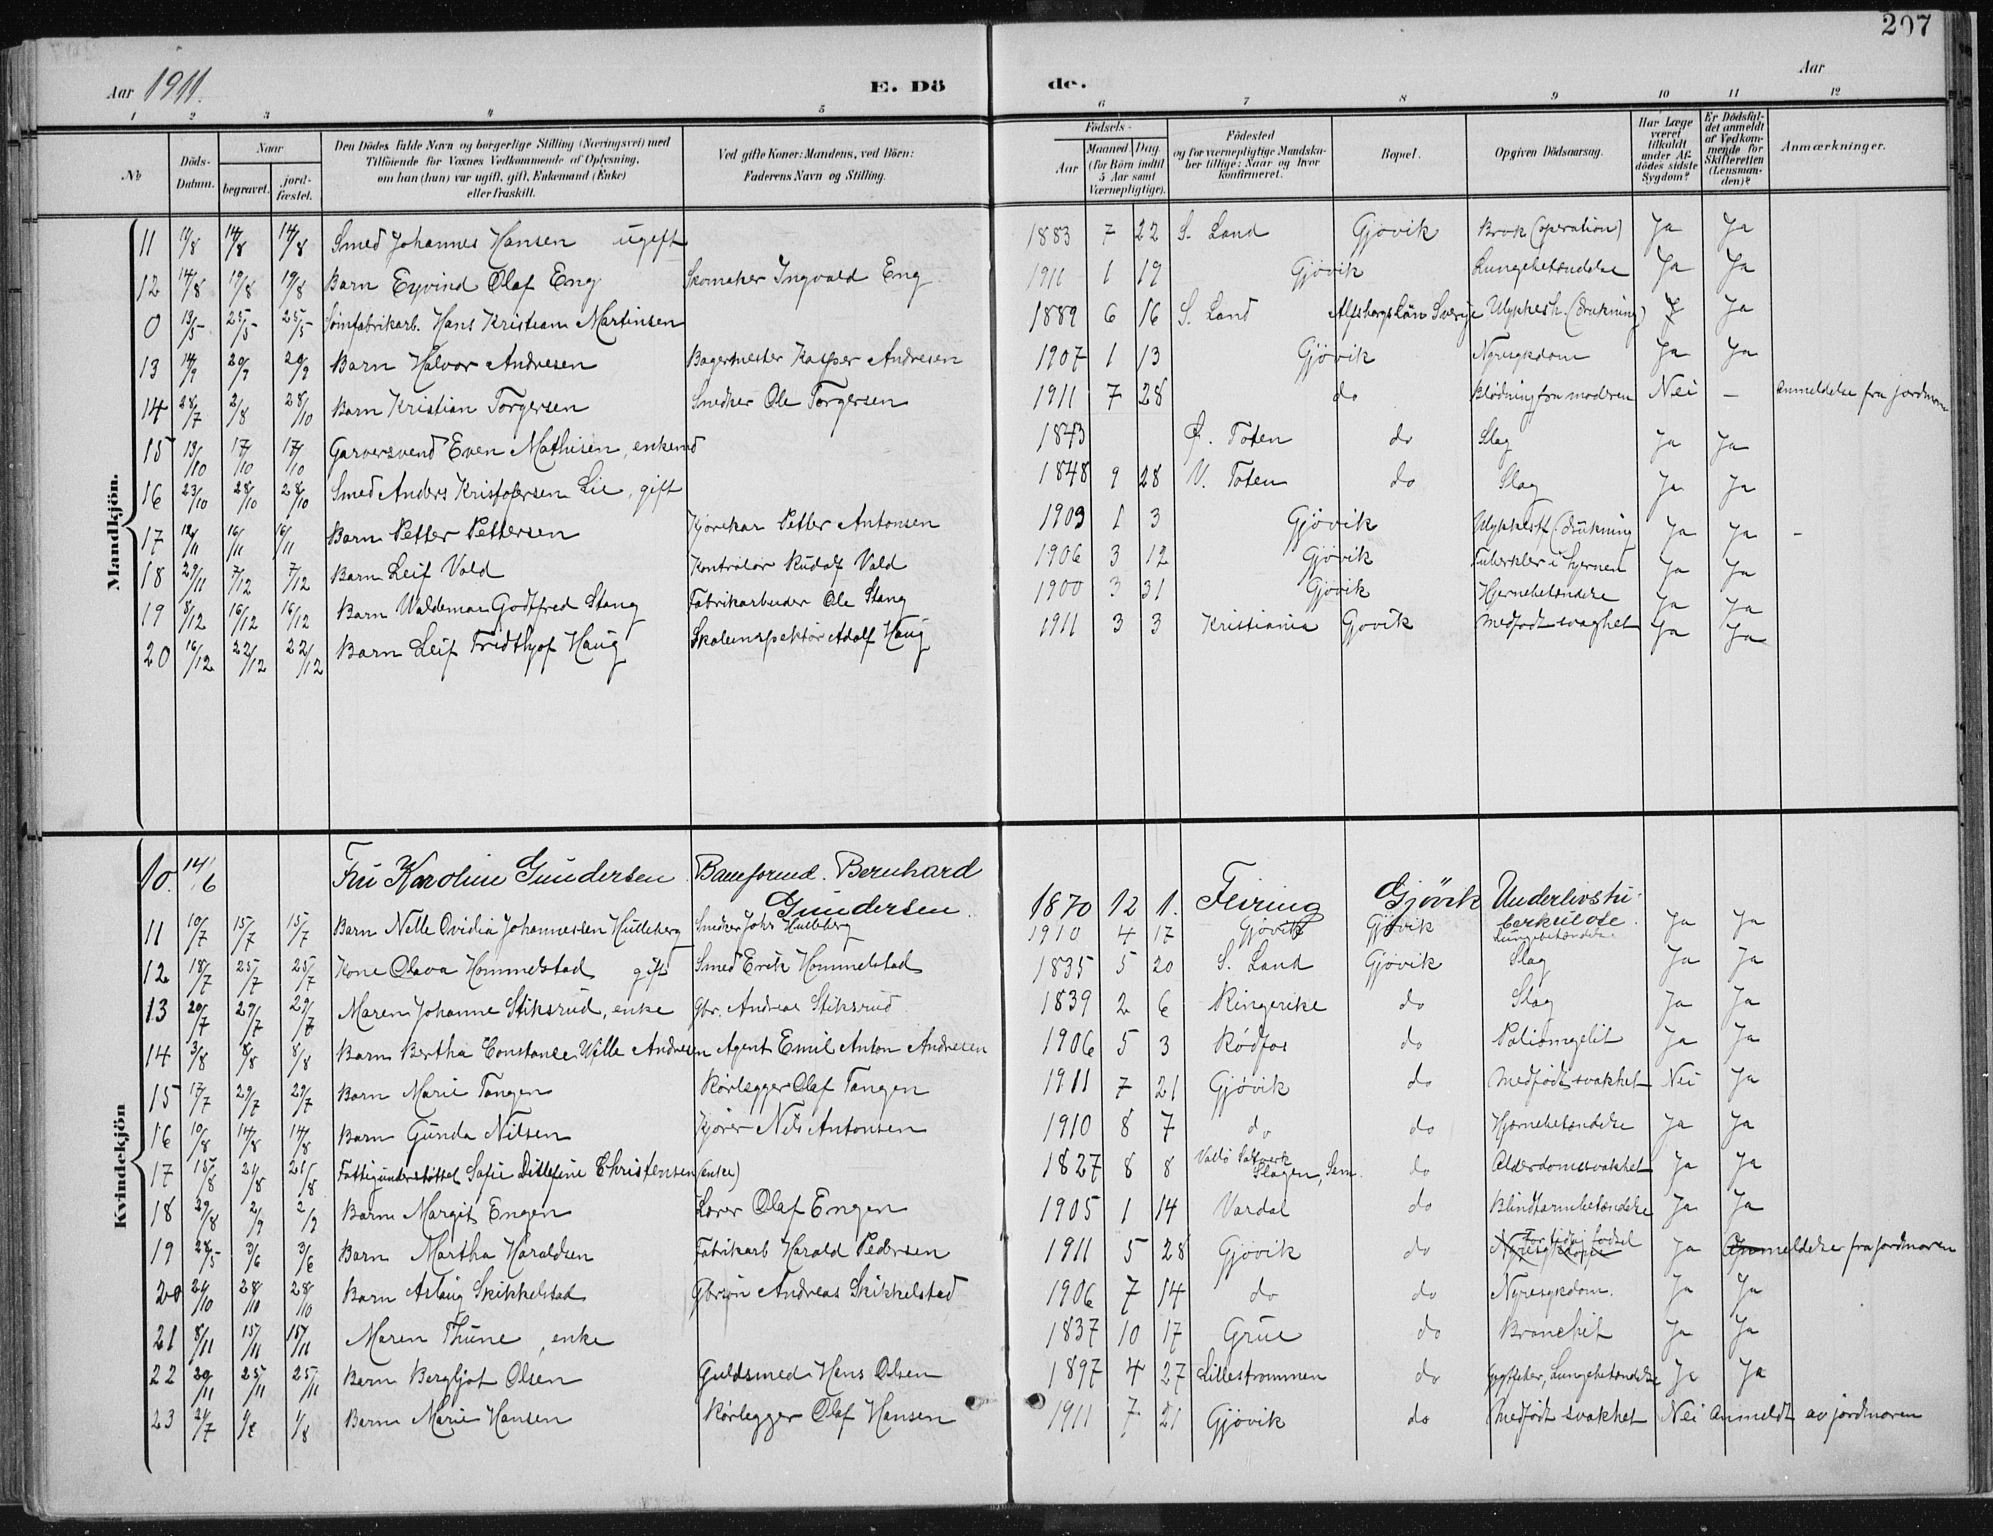 207
Aar 1911. E. Dö de. Aar
1 2 3 4 5 6 7 8 9 10 11 12
No Döds-Datum. Naar begravet. jord-fæstet. Den Dödes fulde Navn og borgerlige Stilling (Næringsvei) med Tilföiende for Voxnes Vedkommende af Oplysning, om han (hun) var ugift, gift, Enkemand (Enke) eller fraskilt. Ved gifte Koner: Mandens, ved Börn: Faderens Navn og Stilling. Födsels- Aar Maaned Dag (for Börn indtil 5 Aar samt Værnepligtige). Födested og for værnepligtige Mandskaber tillige: Naar og hvor konfirmeret. Bopæl. Opgiven Dödsaarsag. Har Læge været tilkaldt under Afdödes sidste Sygdom? Er Dödsfaldet anmeldt af Vedkommende for Skifteretten (Lensmanden)? Anmærkninger.
Mandkjön.
11 14/8 14/8 Smed Johannes Hansen ugift 1883 7 22 S. Land Gjøvik Brok (operation) Ja Ja
12 14/8 19/8 19/8 Barn Eyvind Olaf Eng Skomaker Ingvald Eng. 1911 1 19 Gjøvik Lungebetændelse Ja Ja
0 25/5 25/5 Sömfabrikarb. Hans Kristian Martinsen 1889 6 16 S. Land Alfsborgslän Sverige Ulykkesh. (drukning) Ja
13 14/9 20/9 20/9 Barn Halvor Andresen Bagermester Kasper Andresen 1907 1 13 Gjøvik Nyresykdom Ja Ja
14 28/7 2/8 28/10 Barn Kristian Torgersen Snedker Ole Torgersen 1911 7 28 do Blødning fra moderen Nei – Anmeldelse fra jordmor
15 13/10 17/10 17/10 Garversvend Even Mathisen, enkemd 1843 Ø. Toten do Slag Ja Ja
16 23/10 28/10 28/10 Smed Anders Kristofersen Lie, gift 1848 9 28 V. Toten do Slag Ja Ja
17 12/11 16/11 16/11 Barn Petter Pettersen Petter Antonsen 1903 1 3 Gjøvik Ulykkestf. (drukning Ja Ja –
18 29/11 7/12 7/12 Barn Leif Vold Kontrolør Rudolf Vold 1906 3 12 Gjøvik Tuberkler i hjernen Ja Ja
19 8/12 16/12 16/12 Barn Waldemar Godtfred Stang Fabrikarbeider Ole Stang 1900 3 31 Gjøvik Hjernebetændelse Ja Ja
20 16/12 22/12 22/12 Barn Leif Fridthjof Haug Skoleinspektør Adolf Haug 1911 3 3 Kristiania Gjøvik Medfødt svaghet Ja Ja
Kvindekjön
10. 14/6 Fru Karoline Gundersen Baneformd. Bernhard Gundersen. 1870 12 1. Feiring Gjövik Underlivstuberkulose.
11 10/7 15/7 15/7 Barn Nelle Ovidia Johannessen Hulleberg Snedker Johs Hulleberg 1910 4 17 Gjøvik Gjøvik Lungebetændelse Ja Ja
12 18/7 25/7 25/7 Kone Olava Hommelstad gift Smed Erik Hommelstad 1835 5 20 S. Land Gjøvik Slag Ja Ja
13 20/7 29/7 29/7 Maren Johanne Stiksrud, enke Gbr. Andreas Stiksrud 1839 2 6 Ringerike do Slag Ja Ja
14 3/8 8/8 8/8 Barn Bertha Constance Wille Andresen Agent Emil Anton Andresen 1906 5 3 Rødfos do Poliomyelit Ja Ja
15 17/7 29/7 29/7 Barn Marie Tangen Rørlegger Olaf Tangen 1911 7 21 Gjøvik do Medfødt svakhet Nei Ja
16 10/8 14/8 14/8 Barn Gunda Nilsen Kjører Nils Antonsen 1910 8 7 do do Hjernebetændelse Ja Ja
17 15/8 21/8 21/8 Fattigunderstøttet Sofie Ditlefine Christensen (enke) 1827 8 8 Vallø Saltverk Slagen, Sem. do Alderdomssvakhet Ja Ja
18 29/8 2/9 2/9 Barn Margit Engen Lærer Olaf Engen 1905 1 14 Vardal do Blindtarmbetændelse Ja Ja
19 28/5 3/6 3/6 Barn Martha Haraldsen Fabrikarb Harald Pedersen 1911 5 28 Gjøvik do Nyresykdom For tidlig fødsel Ja Anmeldelse fra jordmoren
20 21/10 28/10 28/10 Barn Aslaug Skikkelstad Gbrsøn Andreas Skikkelstad 1906 7 14 do do Nyresykdom. Ja Ja
21 8/11 15/11 15/11 Maren Thune, enke 1837 10 17 Grue do Bronchit Ja Ja
22 20/11 25/11 25/11 Barn Bergljot Olsen Guldsmed Hans Olsen 1897 4 27 Lillestrømmen do Lungebetændelse Ja Ja
23 21/7 Barn Marie Hansen Rørlegger Olaf Hansen 1911 7 21 Gjøvik do Medfødt svakhet Nei Anmeldt av jordmoren